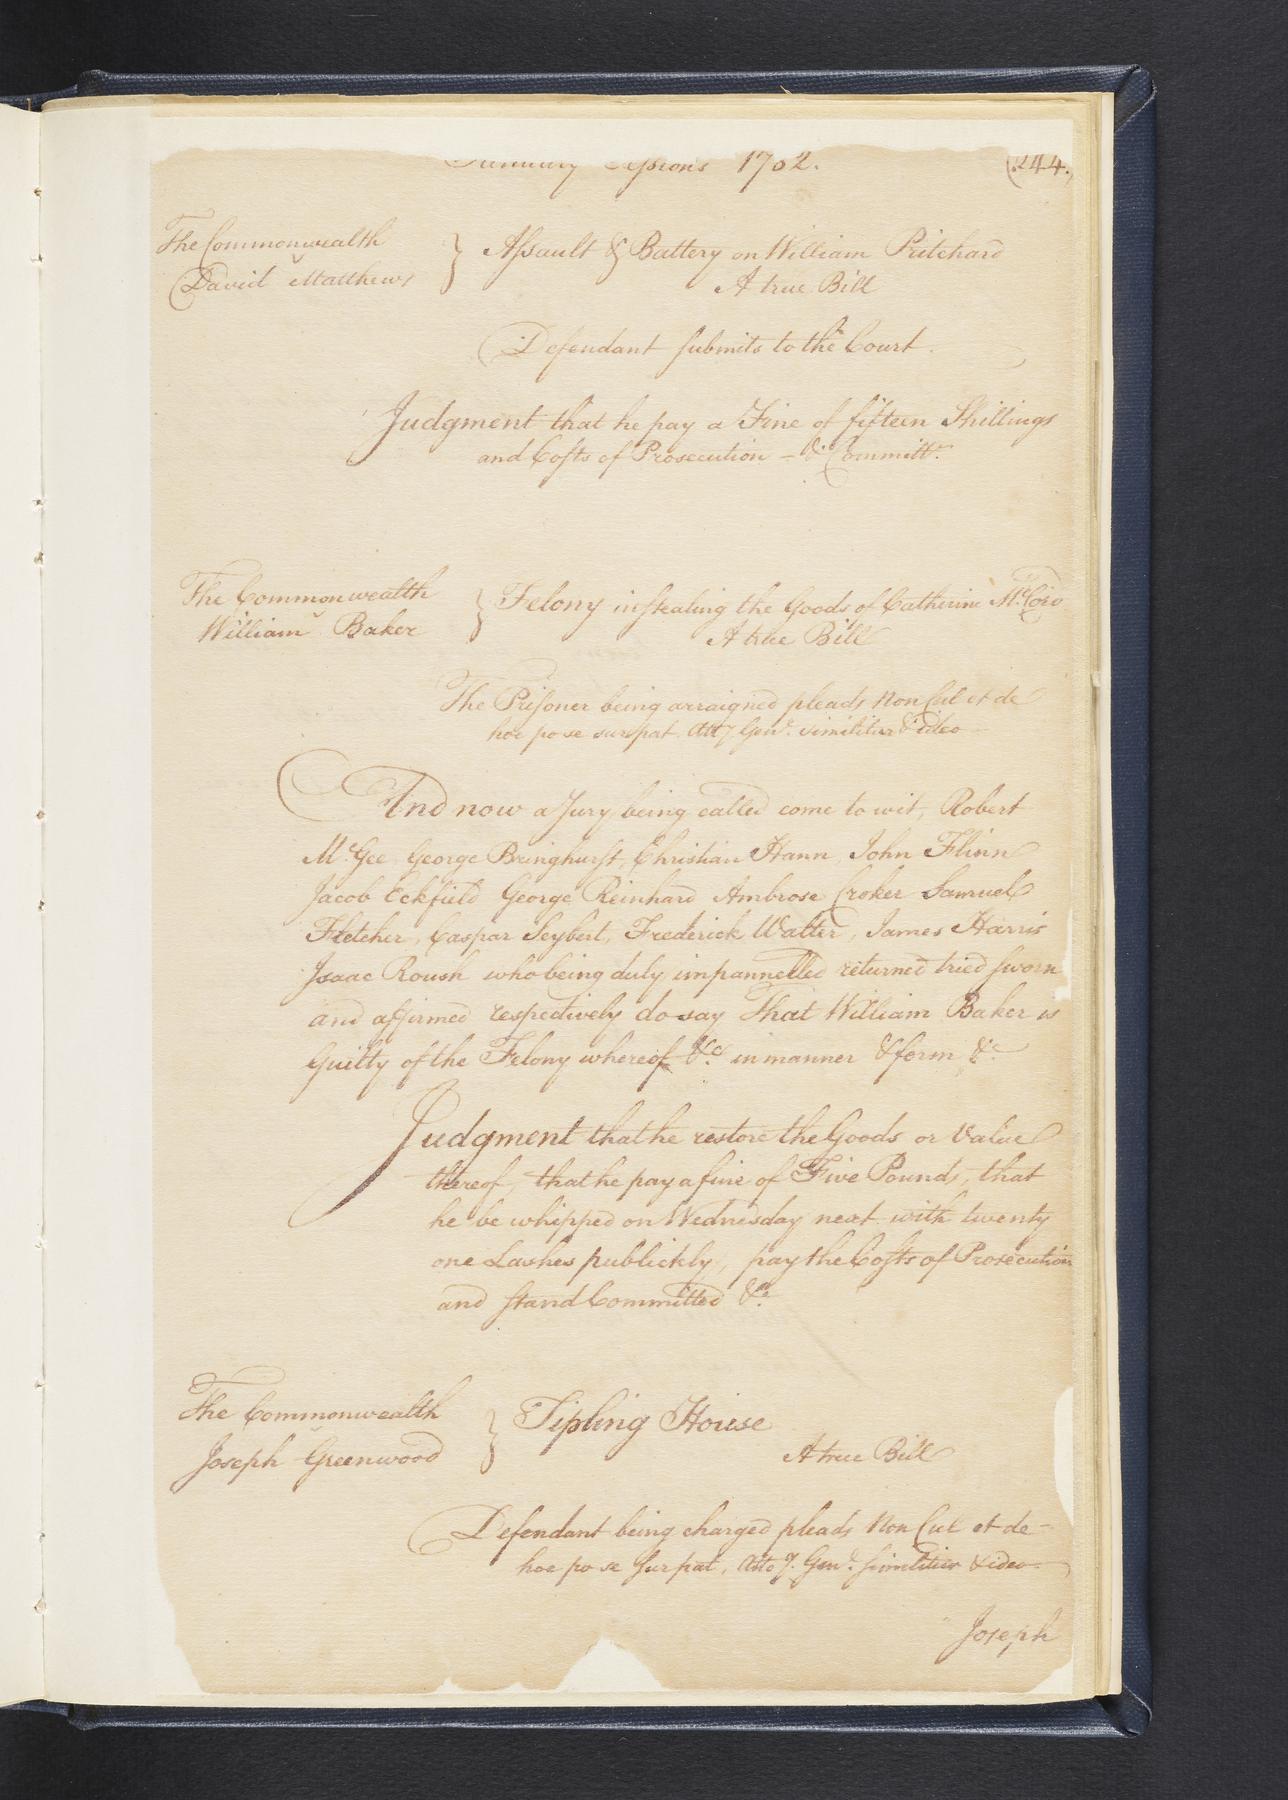 January Sessions 1782.
(244.)
The Commonwealth
v
David Matthews
} Assault & Battery on William Pritchard
A true Bill
Defendant submits to the Court.
Judgment that he pay a Fine of fifteen Shillings
and Costs of Prosecution – & Committ.
The Commonwealth
v
William Baker
} Felony in stealing the Goods of Catherine McCord
A true Bill
The Prisoner being arraigned pleads Non Cul et de
hoc po se sur pat. Atty Genl. similiter & ideo
And now a Jury being called come to wit, Robert
McGee George Bringhurst, Christian Hann, John Flinn
Jacob Eckfield George Reinhard Ambrose Croker Samuel
Fletcher, Caspar Seybert, Frederick Walter, James Harris
Isaac Roush who being duly impannelled returned tried sworn
and affirmed respectively do say That William Baker is
Guilty of the Felony whereof &c. in manner & form &c
Judgment that he restore the Goods or Value
thereof, that he pay a fine of Five Pounds, that
he be whipped on Wednesday next with twenty
one Lashes publickly, pay the Costs of Prosecution
and stand Committed &c.
The Commonwealth
v
Joseph Greenwood
} Tipling House
A true Bill
Defendant being charged pleads Non Cul et de
hoc po se sur pat, Atto y. Genl. similiter & ideo
Joseph